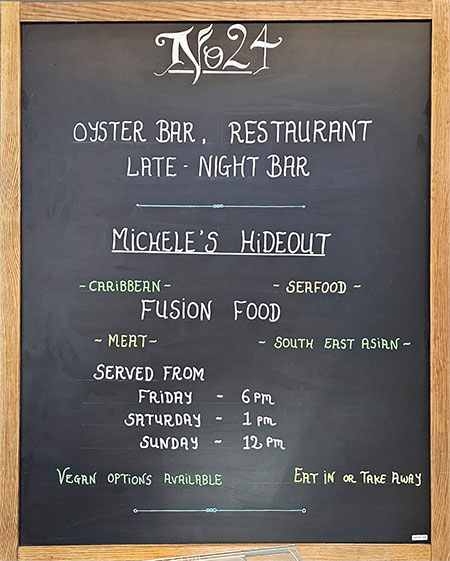 No24
OYSTER BAR, RESTAURANT
LATE - NIGHT BAR
MiCHELE'S HiDEOUT
~CARiBBEAN~ ~ SEAFOOD ~
FUSION FOOD
~ MEAT~ ~ SOUTH EAST ASiAN~
SERVED FROM
FRiDAY ~ 6 pm
SATURDAY ~ 1 pm
SUNDAY ~ 12 pm
VEGAN OPTiONS AVAiLABLE EAT iN OR TAKE AWAY